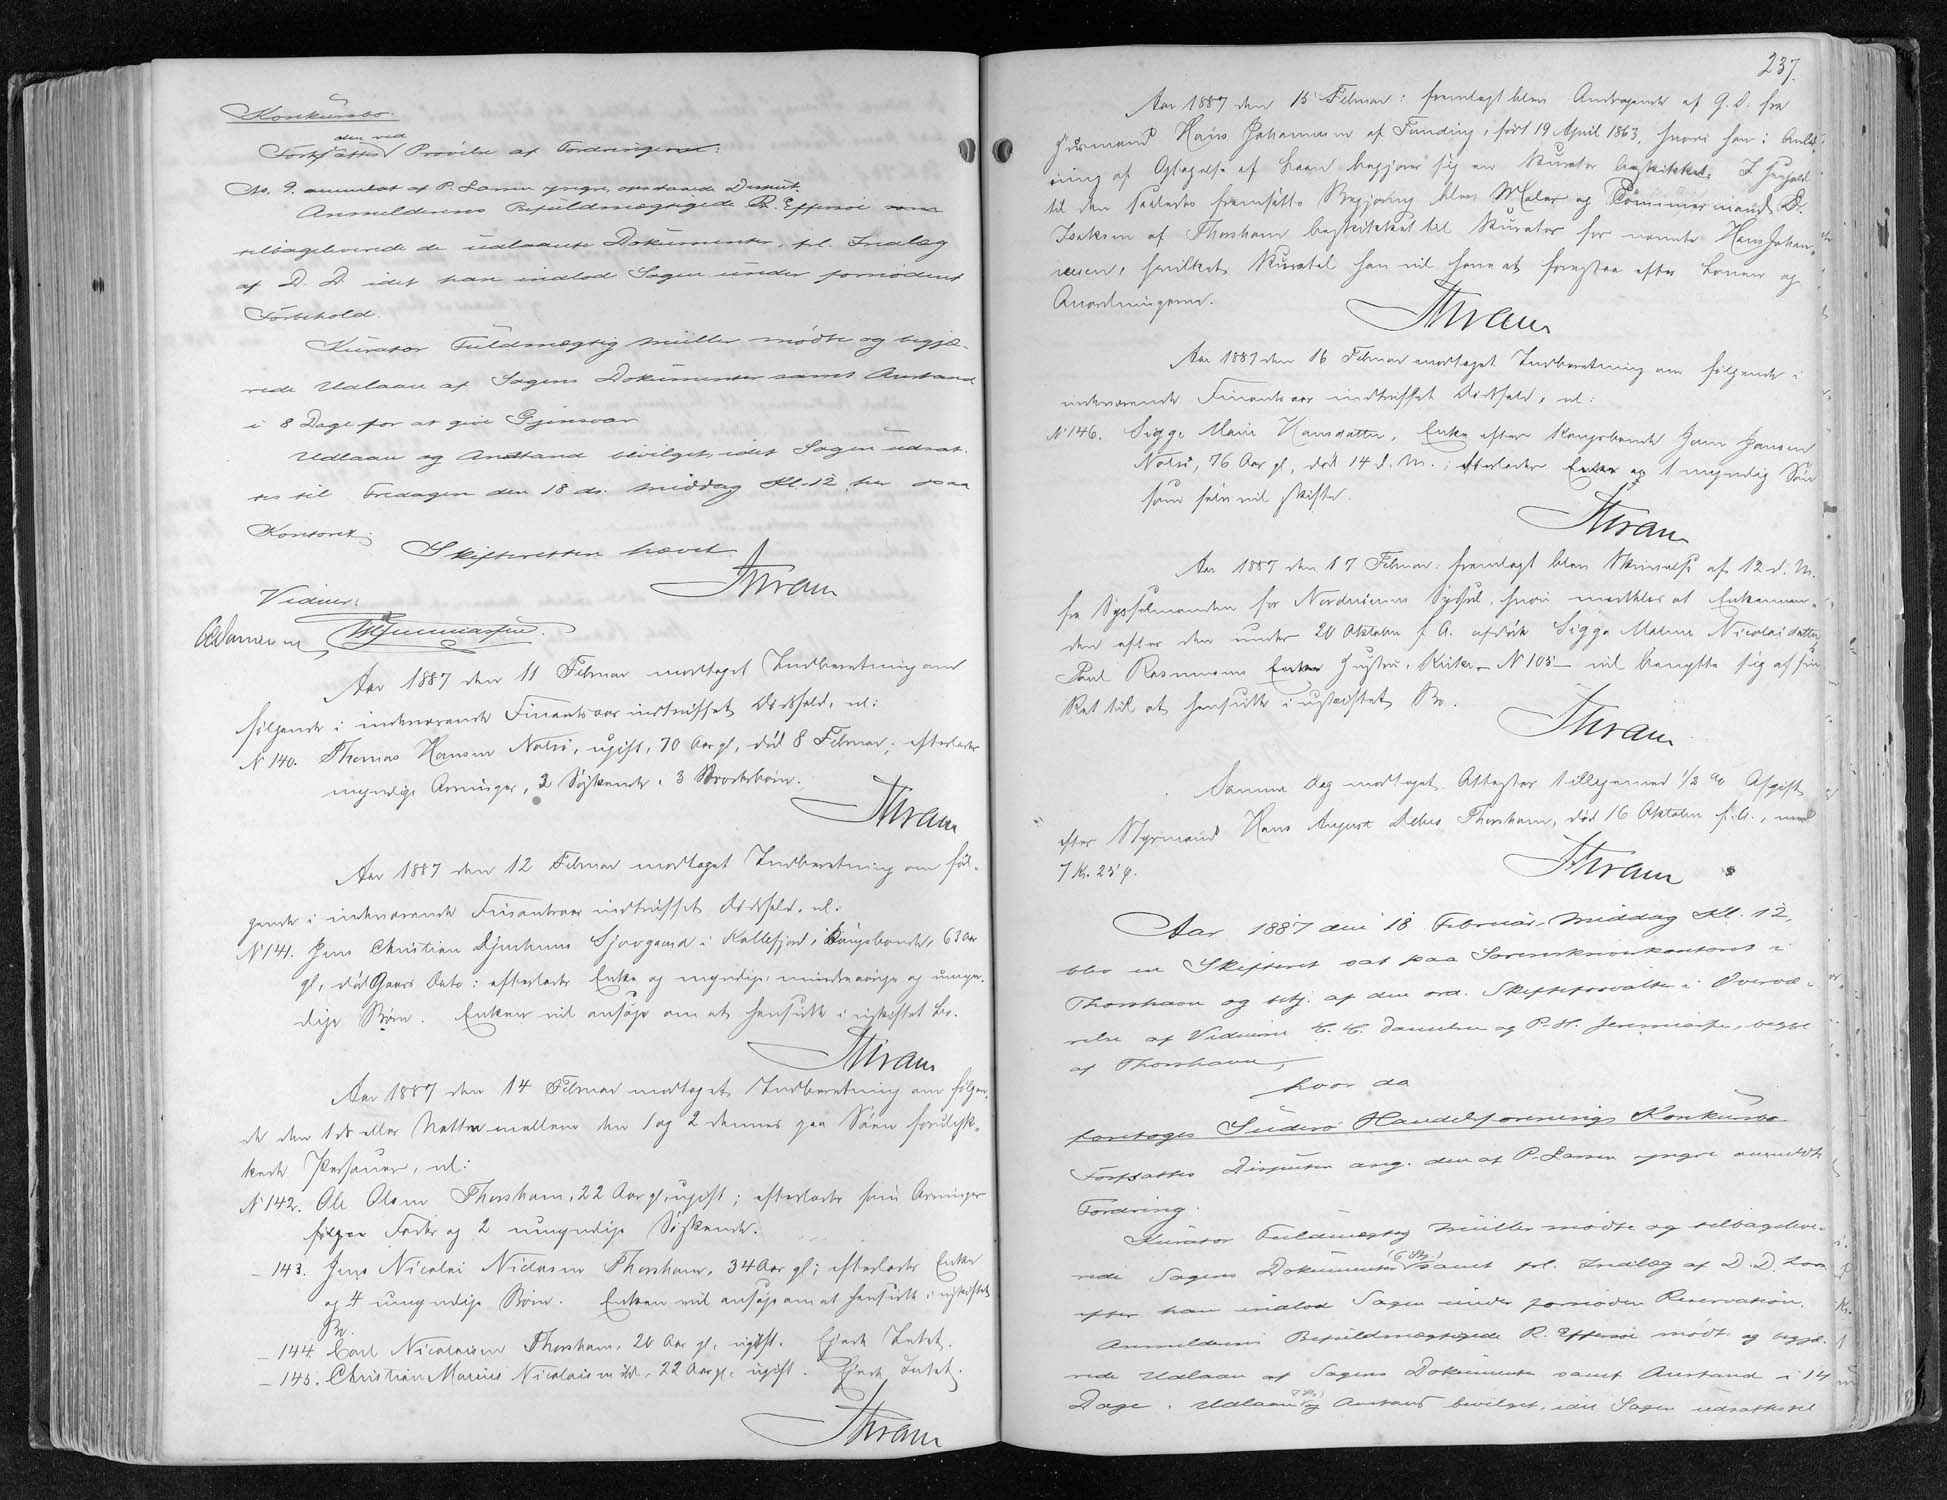 Konkursbo.
den ved
Fortsattes Prøvelse af Fordringerne:
No. 9. anmeldt af P. Larsen yngre, opstaaede Disput.
Anmelderens Befuldmægtigede R. Effersøe
tilbageleverede de udlaante Dokumenter, frl. Indlæg
af D. D. idet han indlod Sagen under fornødent
Forbehold.
Kurator Fuldmægtig Müller mødte og begjæ-
rede Udlaan af Sagens Dokumenter samt Anstand
i 8 Dage for at give Gjensvar
Udlaan og Anstand bevilget, idet Sagen udsat-
tes til Fredagen den 18 ds. Middag Kl. 12 her paa
Kontoret.
Skifteretten hævet
Thram
Vidner:
Aar 1887 den 11 Februar modtaget Indberetning om
følgende i indeværende Finantsaar indtruffet Dødsfald, nl:
No 140. Thomas Hansen Nolsø, ugift, 70 Aar gl, død 8 Februar; efterlader
myndige Arvinger, 2 Søskende, 3 Broderbørn.
Thram
Aar 1887 den 12 Februar modtaget Indberetning om føl-
gende i indeværende Finantsaar indtruffet Dødsfald, nl:
No 141. Jens Christian Djurhuus Sjovgaard i Kollefjord, Kongsbonde, 63 Aar
gl, død Gaars Dato: efterlader Enke og myndige, mindreaarige og umyn-
dige Børn. Enken vil ansøge om at hensidde i uskiftet Bo.
Thram
Aar 1887 den 14 Februar modtaget Indberetning om følgen-
de den 1ste eller Natten mellem den 1 og 2 dennes paa Søen forulyk-
kede Personer, nl:
No 142. Ole Olsen Thorshavn, 22 Aar gl, ugift; efterlader som Arvinger
følgen Fader og 2 umyndige Søskende.
— 143. Jens Nicolai Niclasen Thorshavn, 34 Aar gl; efterlader Enke
og 4 umyndige Børn. Enken vil ansøge om at hensidde i uskiftet
Bo.
— 144. Carl Nicolaisen Thorshavn, 20 Aar gl, ugift. Ejede Intet.
— 145. Christian Marius Nicolaisen ibd, 22 Aar gl, ugift. Ejede Intet.
Thram
237.
Aar 1887 den 15 Februar: fremlagt blev Andragende af G. D. fra
Husmand Hans Johannesen af Funding, født 19 April 1863, hvori han i Anled-
ning af Optagelse af Laan begjærer sig en Kurator beskikket. I Henhold
til den saaledes fremsatte Begjæring blev Maler og Tømmermand D.
Isaksen af Thorshavn beskikket til Kurator for nævnte Hans Johan-
nesen, hvilket Kuratel han vil have at forestaa efter Loven og
Anordningerne.
Thram
Aar 1887 den 16 Februar modtaget Indberetning om følgende i
indeværende Finantsaar indtruffet Dødsfald, nl:
No 146. Sigge Marie Hansdatter, Enke efter Kongsbonde Joen Joensen
Nolsø, 76 Aar gl, død 14 d. M.; efterlader 1 myndig Søn
som selv vil skifte.
Thram
Aar 1887 den 17 Februar: fremlagt blev Skrivelse af 12 d. M.
fra Sysselmanden for Norderøernes Syssel, hvori meddeles at Enkeman-
den efter den under 20 Oktober f. A. afdøde Sigga Malene Nicolaidatter,
Poul Rasmussens Hustru, — No 105 — vil benytte sig af sin
Ret til at hensidde i uskiftet Bo.
Thram
Samme Dag modtaget Attester tilligemed 1/2 % Afgift
efter Styrmand Hans August Debes Thorshavn, død 16 Oktober f. A., med
7 Kr. 25 Ø.
Thram
Aar 1887 den 18 Februar, Middag Kl. 12,
blev en Skifteret sat paa Sorenskriverkontoret i
Thorshavn og betj. af den ord. Skifteforvalter i Overvæ-
relse af Vidnerne C. C. Danielsen og P. H. Jeremiassen, begge
af Thorshavn,
hvor da
foretoges Suderø Handelsforenings Konkursbo
Fortsattes Disputen ang. den af P. Larsen yngre anmeldte
Fordring.
Kurator Fuldmægtig Müller mødte og tilbageleve-
(6 Stk.)
rede Sagens Dokumenter samt frl. Indlæg af D. D. hvor
efter han indlod Sagen under fornøden Reservation.
Anmelderens Befuldmægtigede R. Effersøe mødte og begjæ-
rede Udlaan af Sagens Dokumenter samt Anstand i 14
Dage. Udlaan og Anstand bevilget, idet Sagen udsattes til